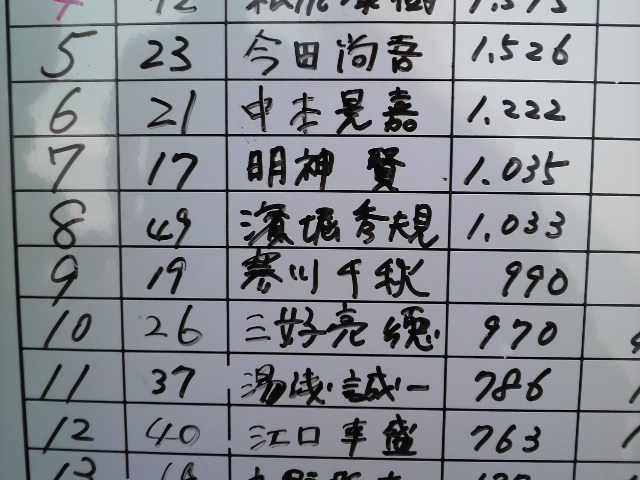 5 23 今田尚吾 1.526
6 21 中本晃嘉 1.222
7 17 明神 賢 1.035
8 49 濱堀秀規 1.033
9 19 寒川千秋 990
10 26 三好亮徳 970
11 37 湯浅誠一 786
12 40 江口幸盛 763
13